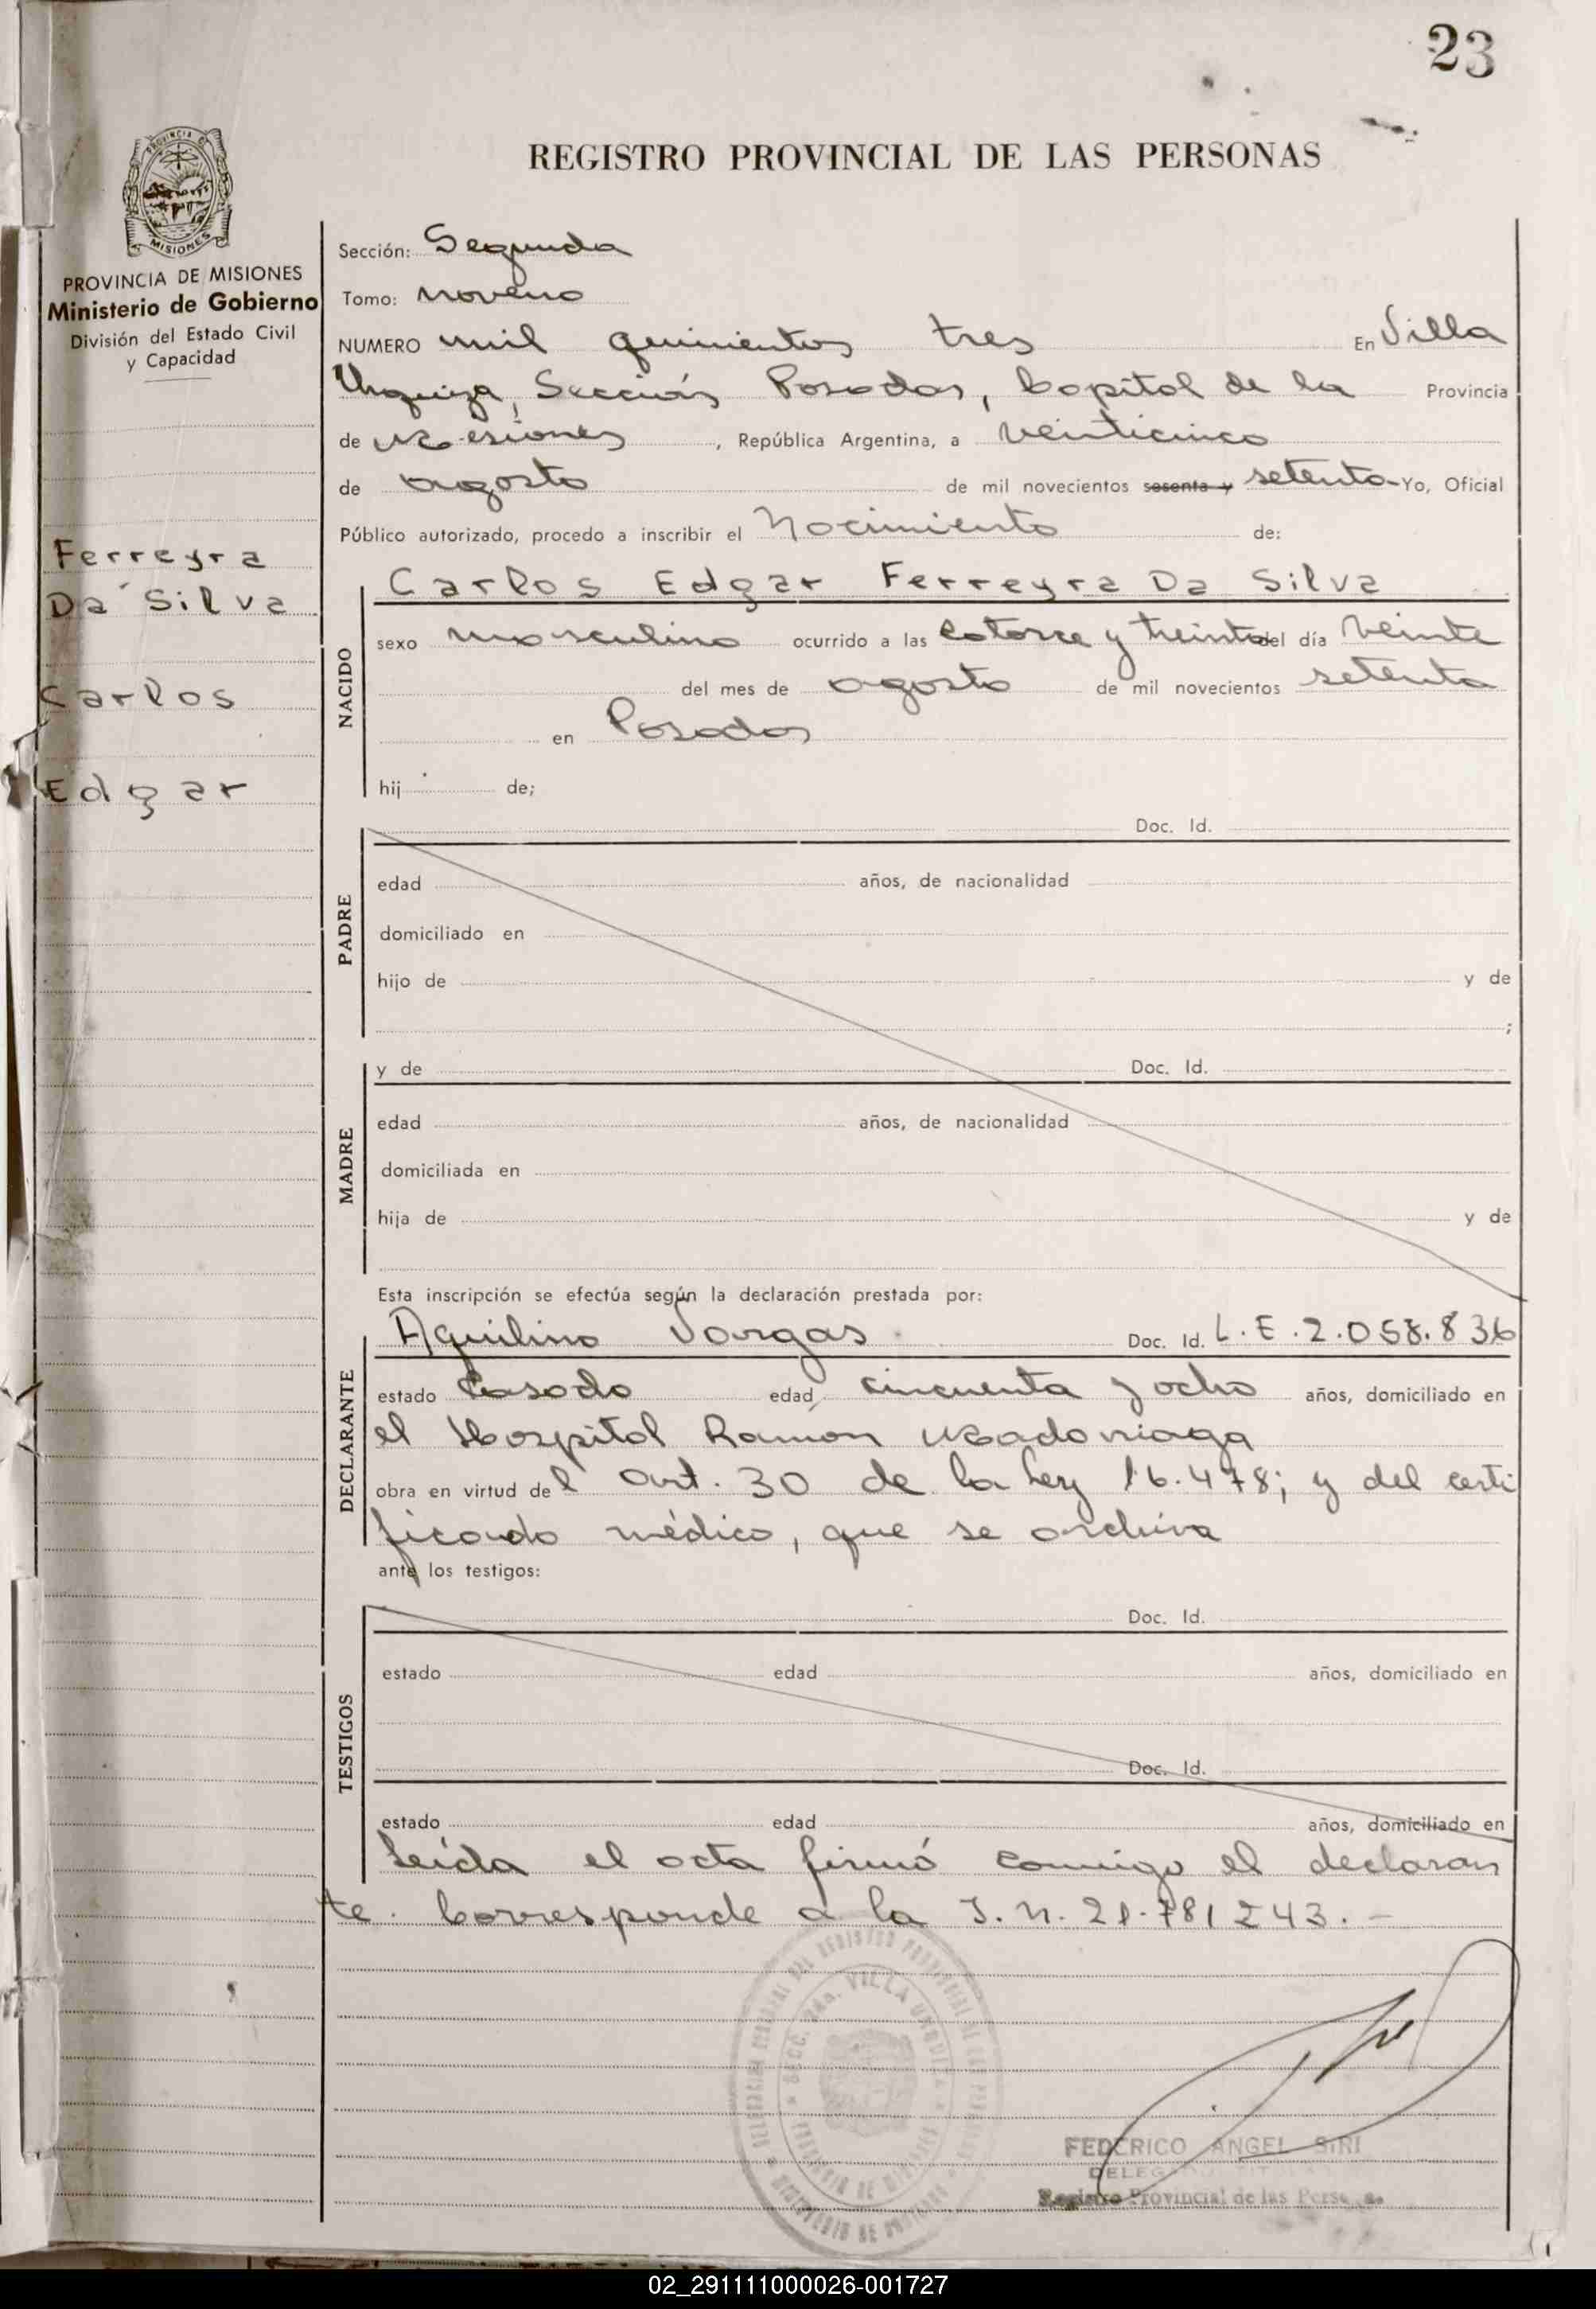 23
REGISTRO PROVINCIAL DE LAS PERSONAS
PROVINCIA DE MISIONES
Ministerio de Gobierno
División del Estado Civil
y Capacidad
Ferreyra
Da Silva
Carlos
Edgar
Sección: Segunda
Tomo: noveno
NUMERO mil quinientos tres En Villa
Urquiza, Sección Posadas, Capital de la Provincia
de Misiones, República Argentina, a veinticinco
de agosto de mil novecientos sesenta y setenta Yo, Oficial
Público autorizado, procedo a inscribir el Nacimiento de:
NACIDO
Carlos Edgar Ferreyra Da Silva
sexo masculino ocurrido a las catorce y treinta del día veinte
del mes de agosto de mil novecientos setenta
en Posadas
hij de;
PADRE
Doc. Id.
edad años, de nacionalidad
domiciliado en
hijo de y de
;
MADRE
y de Doc. Id.
edad años, de nacionalidad
domiciliada en
hija de y de
Esta inscripción se efectúa según la declaración prestada por:
DECLARANTE
Aquilino Vargas Doc. Id. L.E.2.058.836
estado Casado edad cincuenta y ocho años, domiciliado en
el Hospital Ramón Madariaga
obra en virtud del art. 30 de la Ley 16.478; y del certi
ficado médico, que se archiva
ante los testigos:
TESTIGOS
Doc. Id.
estado edad años, domiciliado en
Doc. Id.
estado edad años, domiciliado en
Leída el acta firmó conmigo el declaran
te. Corresponde a la I.N. 21.781243.-
FEDERICO ANGEL SIRI
Registro Provincial de las
02_291111000026-001727